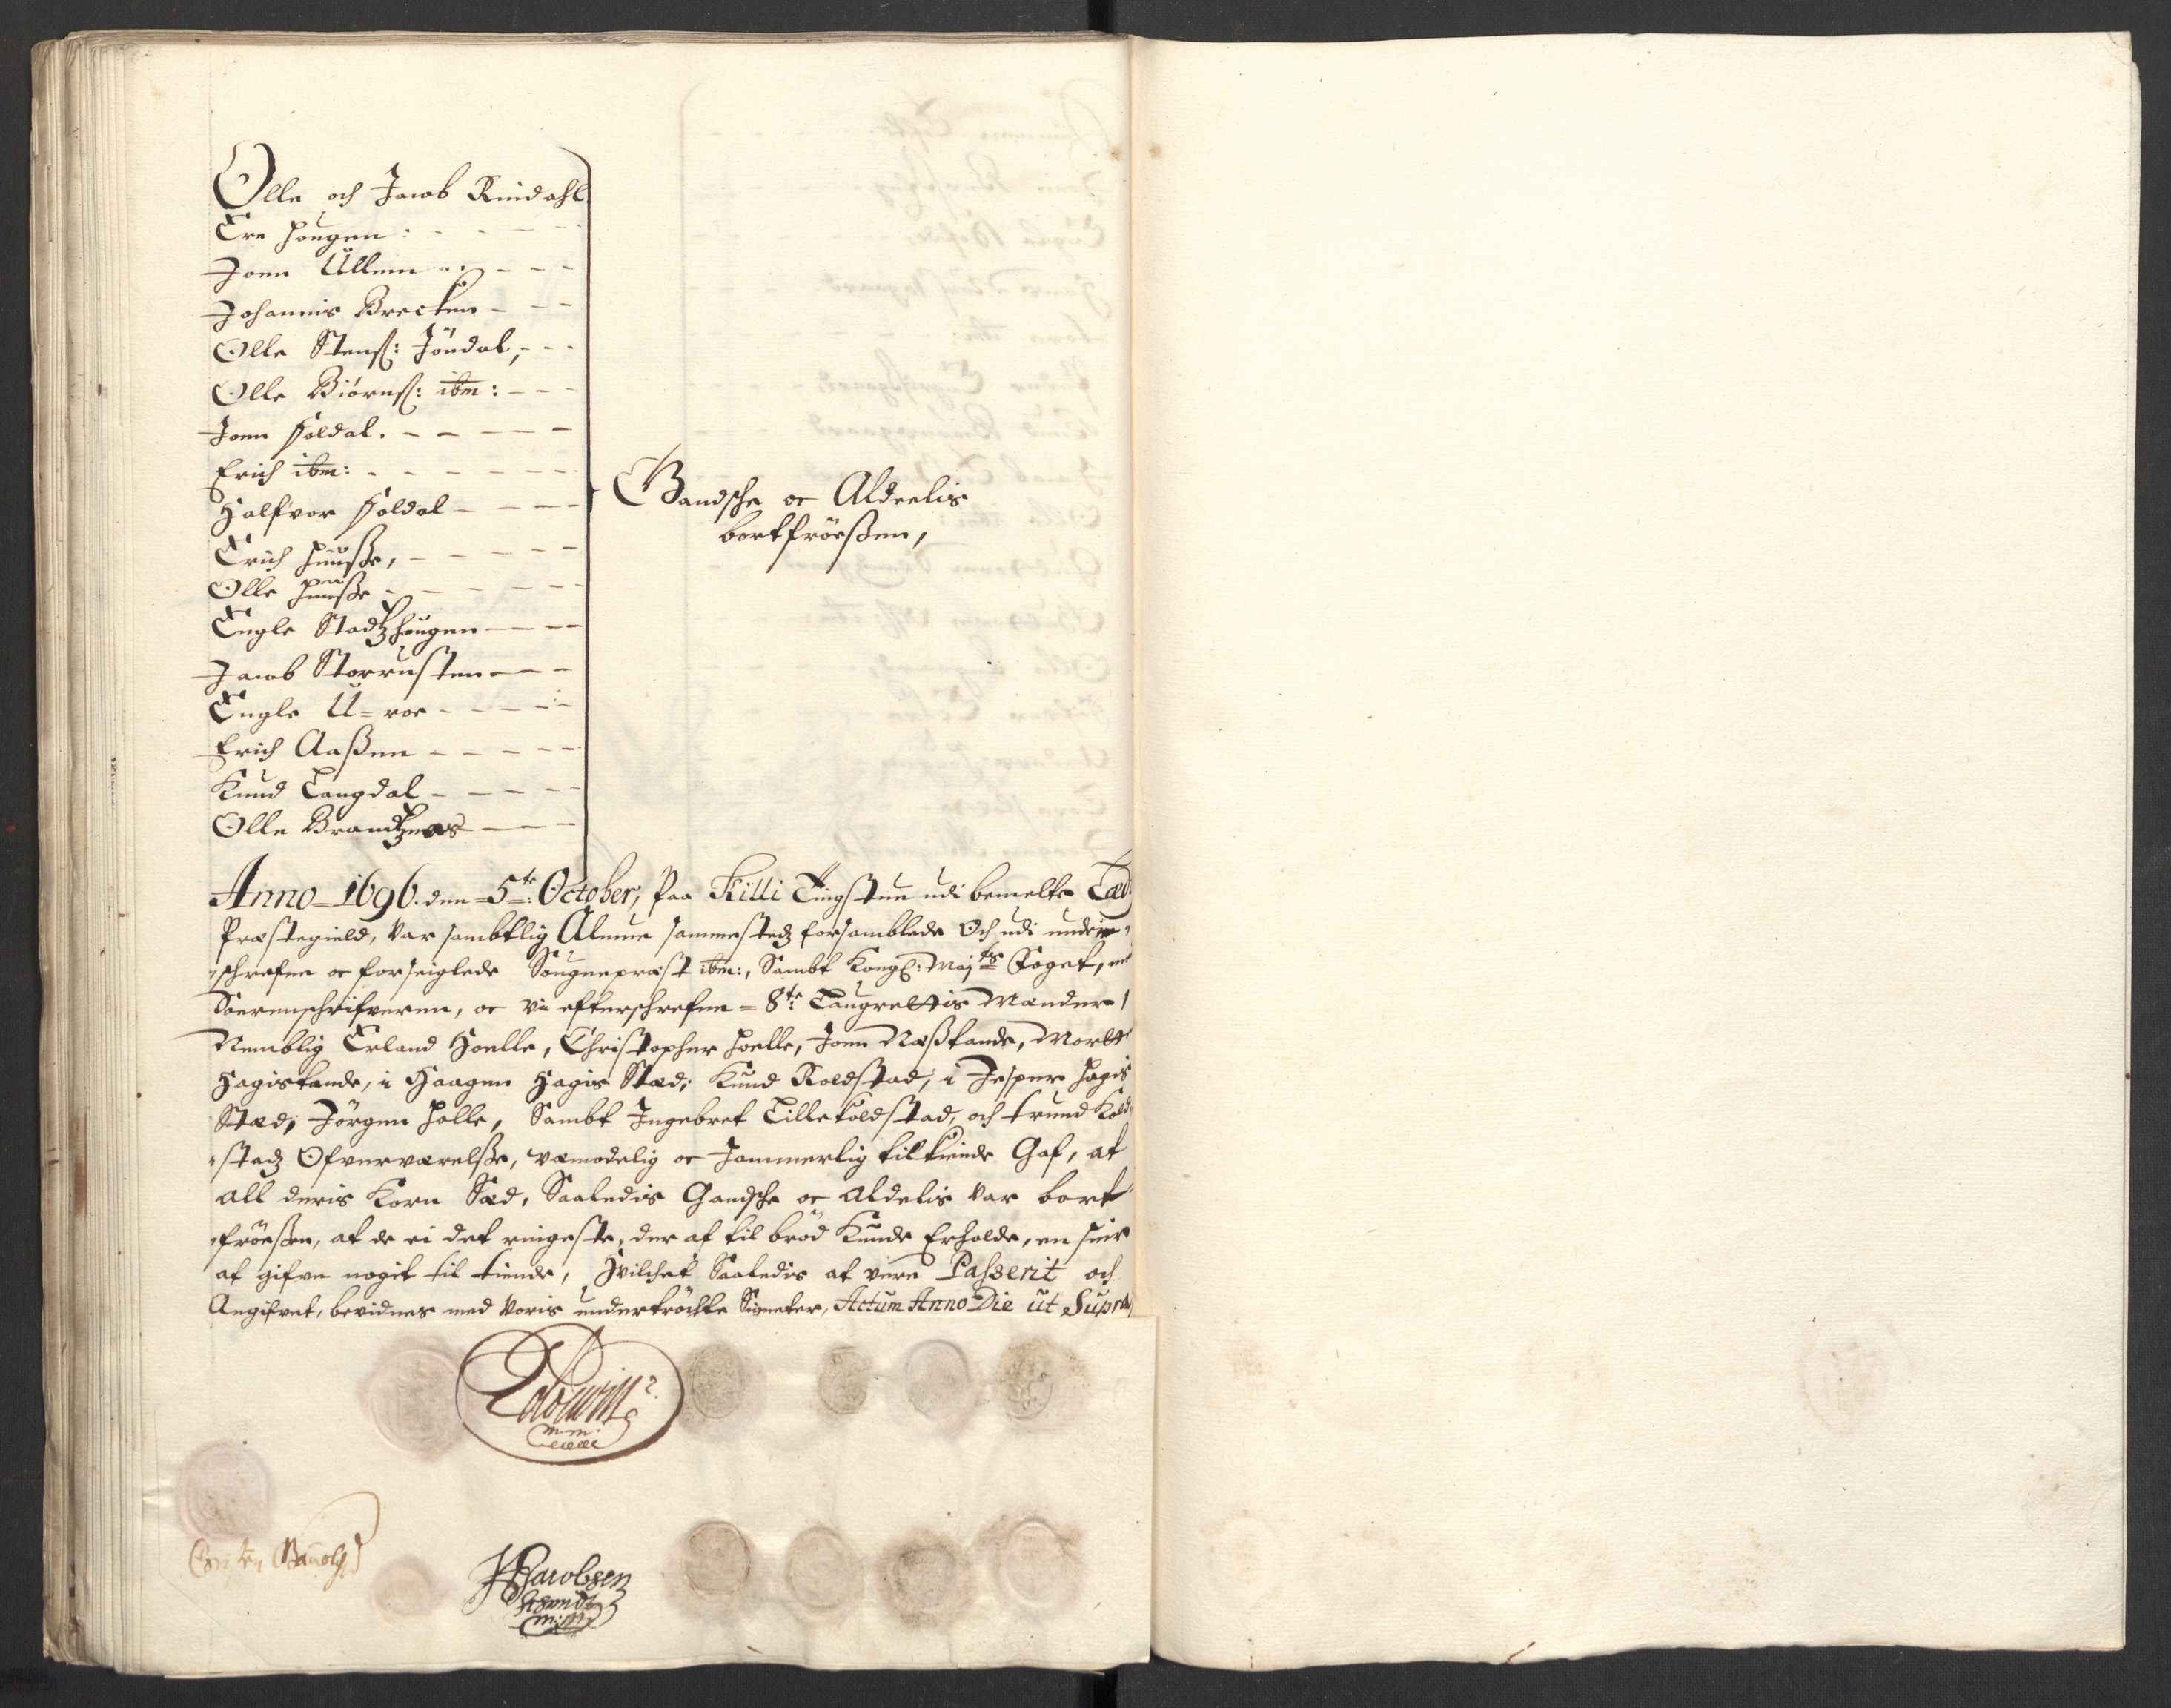 Olle och Jacob Rindahl
Tre Hougen: - - - -
Joen Ullem - - - -
Johannis Brecken - - -
Olle Stens: Jöndal, - - -
Olle Biörns: ibm: - - -
Joen Foldal. - - - - -
Erich ibm: - - - - - -
Halfvor Foldal - - - -
Erich Huusße, - - - - -
Olle Huusße - - - - -
Engle Stadtzhougen - - -
Jacob Storrusten - - -
Engle U=roe - - - - -
Erich Aaßen - - - - -
Knud Langdal - - - - -
Olle Brandtznæs - - -
Gandsche oc Aldeelis
bortfröeßen,
Anno 1696. den 5te: October, Paa Killi Tingstue udi bemelte
Præstegield, Var sambtlig Almue sammestedz forsamblede Och udi under-
schrefne oc forseiglede Sougnepræst ibm:, Sambt Kongl: Mayts Foget,
Sorenschrifveren, oc vii efterschrefne 8te Laugrettis Mænder,
Nemblig Erland Hoelle, Christopher Hoelle, Joen Næßkande,
Hagiskande, i Haagen Hagis Stæd, Knud Koldstad, i Jesper Hagis
Stæd, Jörgen Holle, Sambt Ingebret Lillekoldstad, och Trund Kold-
stadz Ofververelsße, væmodelig oc Jammerlig tilkiende Gaf, at
all deris Korn Sæd, Saaledis Gandsche oc aldelis Var bort
fröeßen, at de ei det ringeste, der af til bröd Kunde Erholde, en
af gifve nogit til tiende, Hvilchet Saaledis at være Passerit och
Angifvet, bevidnes med Voris undertröckte Signeter, Actum Anno Die ut Supra
m.m.
Jacobsen